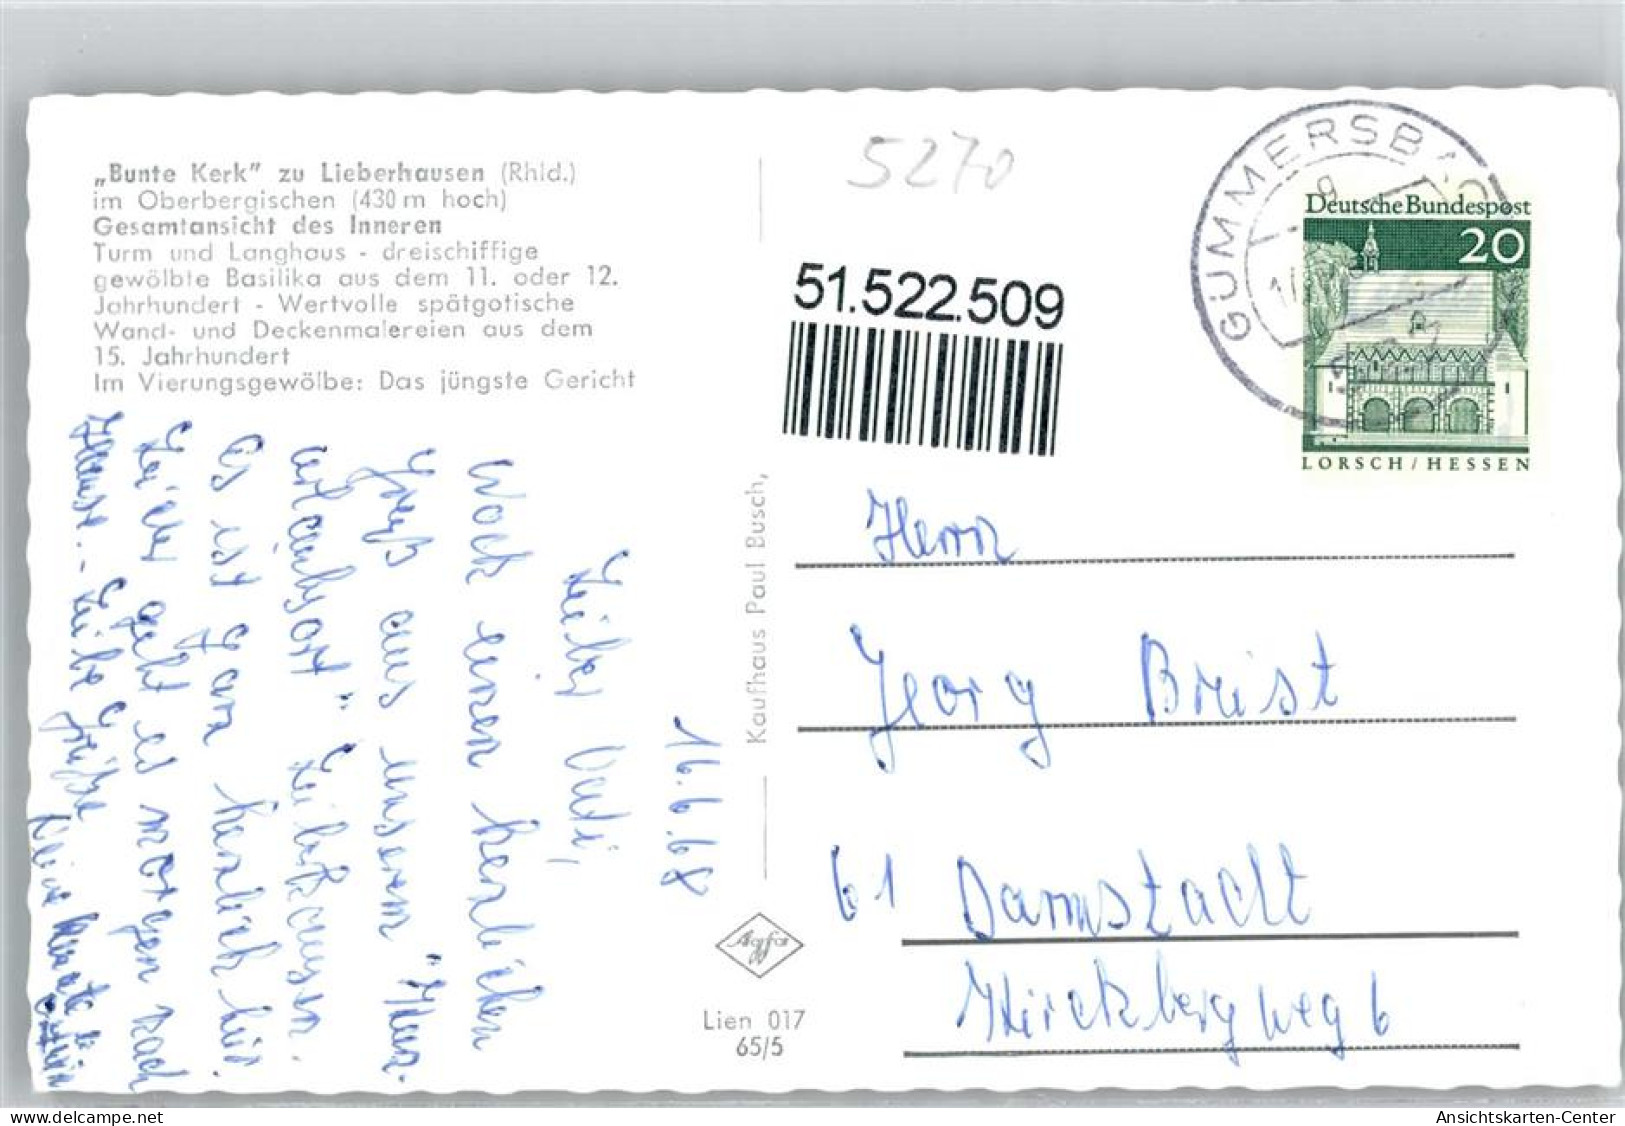 „Bunte Kerk” zu Lieberhausen (Rhld.)
im Oberbergischen (430 m hoch)
Gesamtansicht des Inneren
Turm und Langhaus - dreischiffige
gewölbte Basilika aus dem 11. oder 12.
Jahrhundert - Wertvolle spätgotische
Wand- und Deckenmalereien aus dem
15. Jahrhundert
Im Vierungsgewölbe: Das jüngste Gericht
16.6.68
Lieber Vati,
Noch einen herzlichen
Gruß aus unserem "Kur-
urlaubsort" Lieberhausen.
Es ist ganz herrlich hier.
Leider geht es morgen nach
Hause. - Liebe Grüße
Deine
Kaufhaus Paul Busch,
Agfa
Lien 017
65/5
5270
51.522.509
GUMMERSBACH
Deutsche Bundespost
20
LORSCH / HESSEN
Herrn
Georg Breist
61 Darmstadt
Hirchbergweg 6
Ansichtskarten-Center